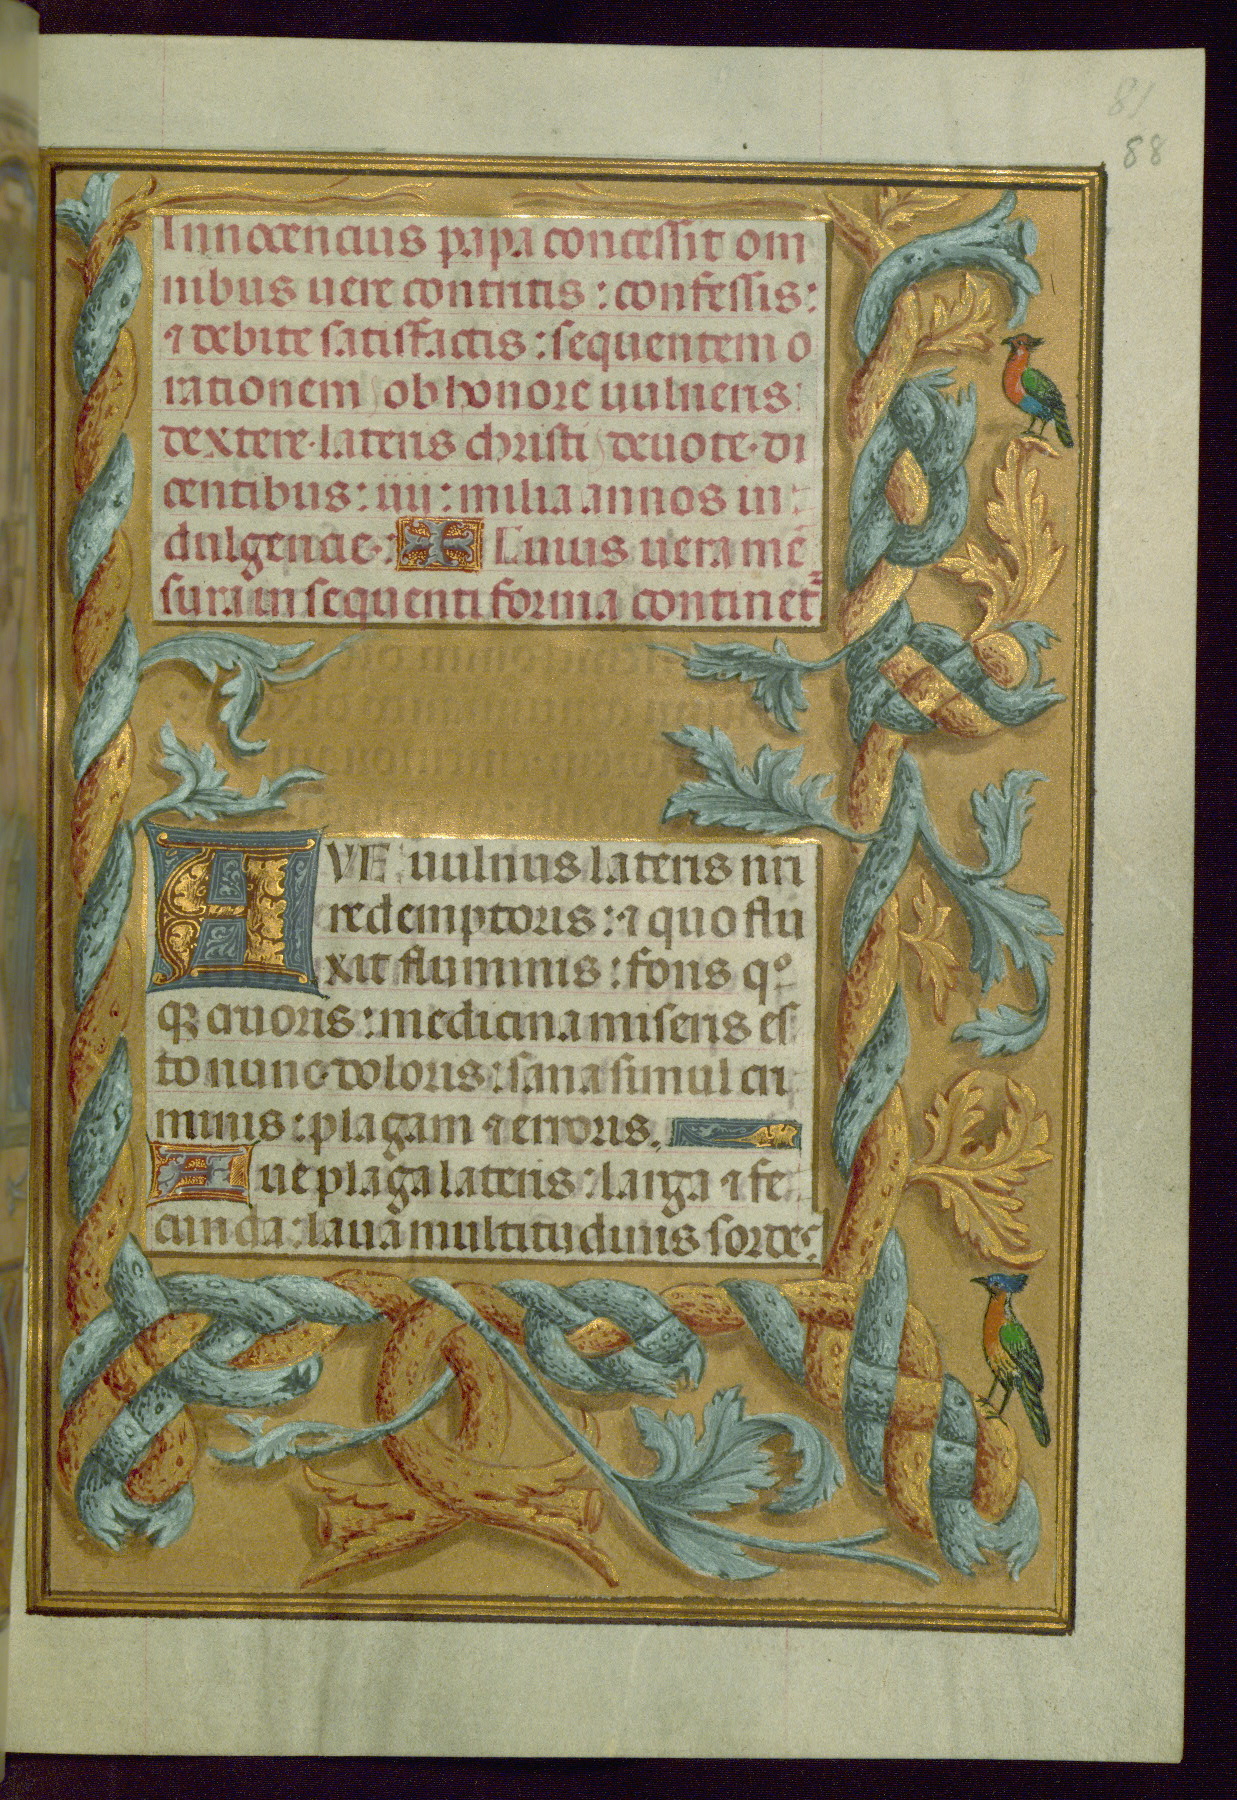 81
88
Innocencius papa concessit om
nibus uere contritis : confessis :
⁊ debite satisfactis : sequentem o
rationem ob honore uulneris
dextere · lateris christi deuote · di
centibus : iiii : milia annos in
dulgencie · : Cuius uera mē
sura in sequenti forma continet᷑
AVE uulnus lateris nri
redemptoris : ⁊ quo flu
xit fluminis : fons qͦ
qꝫ cruoris : medicina miseris es
to nunc · doloris : sana simul cri
minis : plagam ⁊ erroris.
Aue plaga lateris : larga ⁊ fe
cunda : laua multitudinis sordes